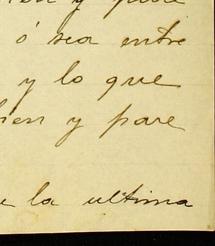 y
ó sea entre
y lo que
bien y pare
la ultima